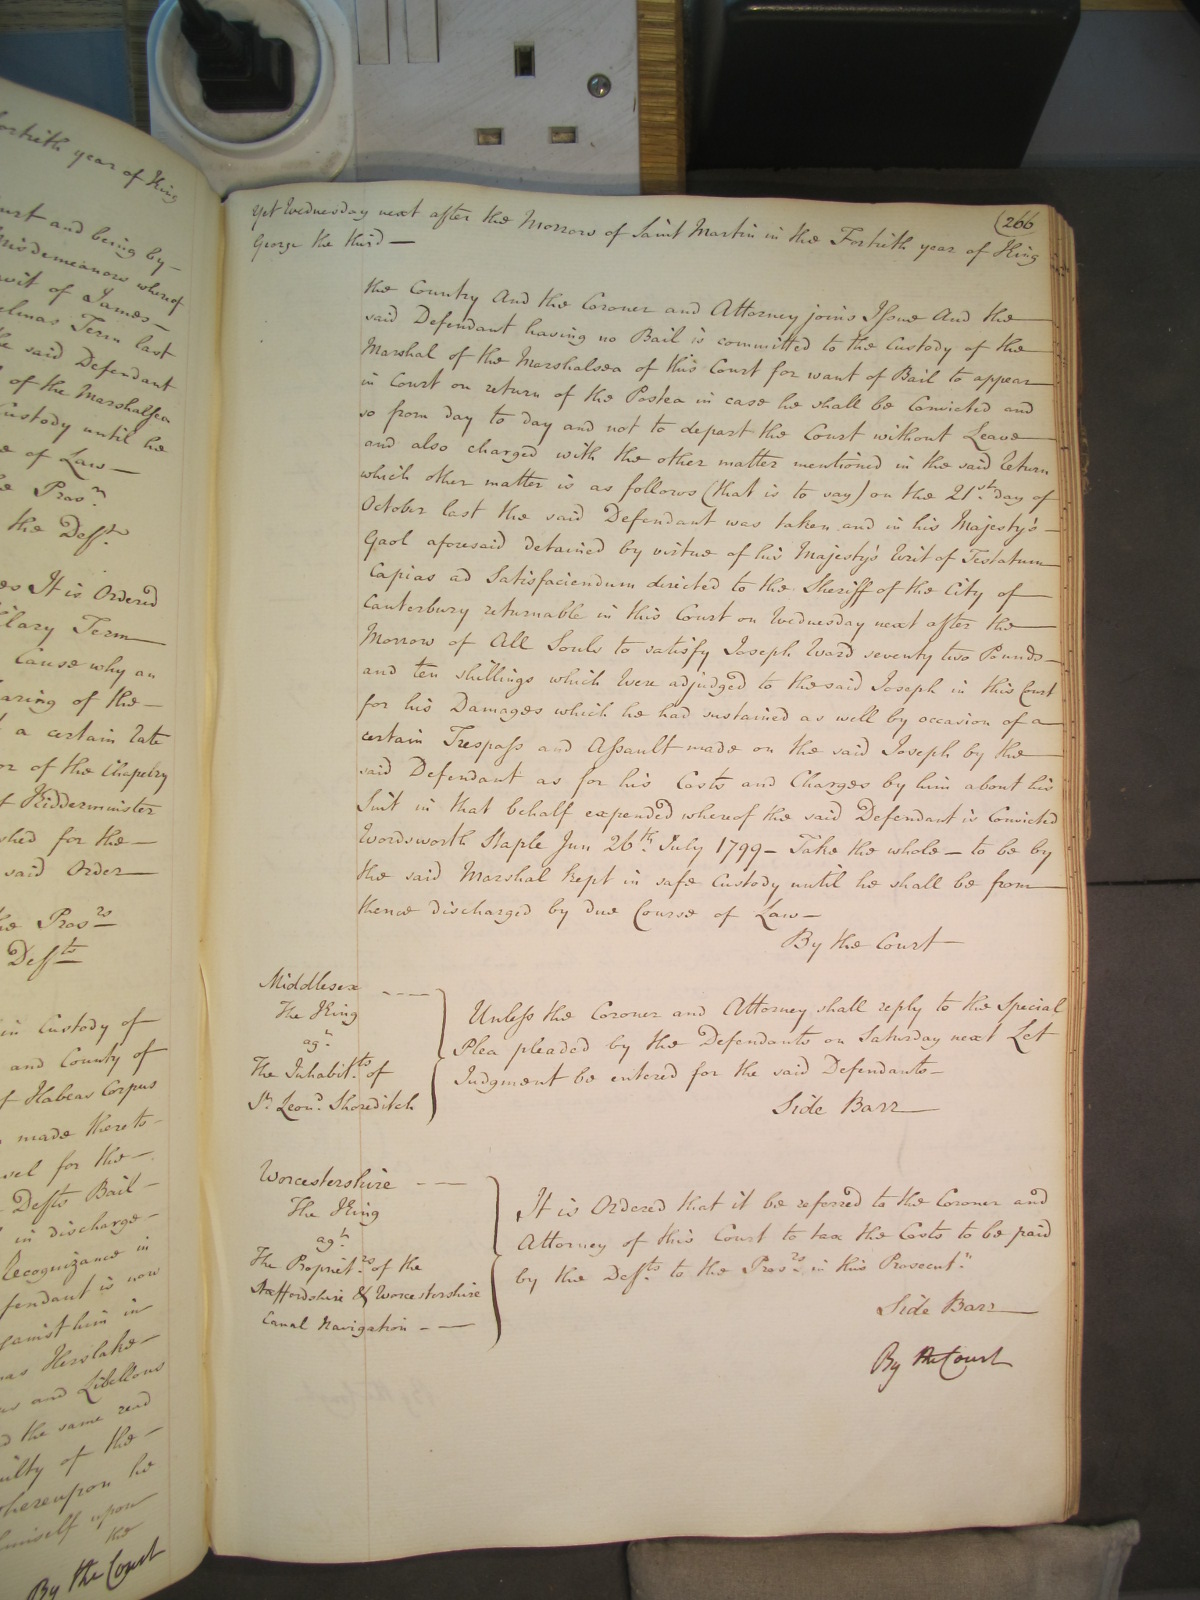 fortieth year of King
urt and being by—
Misdemeanors whereof
avit of James—
elmas Term last
he said Defendant
l of the Marshalsea
Custody until he
e of Law—
he Prosr.
the Deft.
es It is Ordered
ilary Term
Cause why an
aring of the—
a certain late
or of the Chapelry
f Kidderminster
shed for the—
said Order
he Prosrs
Defts
in Custody of
and County of
f Habeas Corpus
made thereto-
sel for the—
Defts Bail—
in discharge—
Recognizance in
fendant is now
against him in
as and Libellous
d the same read
uilty of the—
whereupon he
himself upon
the
By the Court
(266
Yet Wednesday next after the Morrow of Saint Martin in the Fortieth year of King
George the third—
the Country And the Coroner and Attorney joins Issue And the
said Defendant having no Bail is committed to the Custody of the
Marshal of the Marshalsea of this Court for want of Bail to appear
in Court on return of the Postea in case he shall be Convicted and
so from day to day and not to depart the Court without Leave
and also charged with the other matter mentioned in the said Return
which other matter is as follows (that is to say) on the 21st day of
October last the said Defendant was taken and in his Majesty's—
Gaol aforesaid detained by virtue of his Majesty's Writ of Testatum
Capias ad Satisfaciendum directed to the Sheriff of the City of
Canterbury returnable in this Court on Wednesday next after the
Morrow of All Souls to satisfy Joseph Ward seventy two Pounds—
and ten shillings which were adjudged to the said Joseph in this Court
for his Damages which he had sustained as well by occasion of a
certain Trespass and Assault made on the said Joseph by the
said Defendant as for his Costs and Charges by him about his
Suit in that behalf expended whereof the said Defendant is Convicted
Wordsworth Staple Inn 26th July 1799— Take the whole— to be by
the said Marshal kept in safe Custody until he shall be from
thence discharged by due Course of Law—
By the Court—
Middlesex
The King
agt.
The Inhabitts of
St. Leond. Shoreditch
Unless the Coroner and Attorney shall reply to the Special
Plea pleaded by the Defendants on Saturday next Let
Judgment be entered for the said Defendants—
Side Barr
Worcestershire
The King
agt.
The Propriet.rs of the
Staffordshire & Worcestershire
Canal Navigation
It is Ordered that it be referred to the Coroner and
Attorney of this Court to tax the Costs to be paid
by the Defts to the Prosrs in this Prosecutn.
Side Barr
By the Court